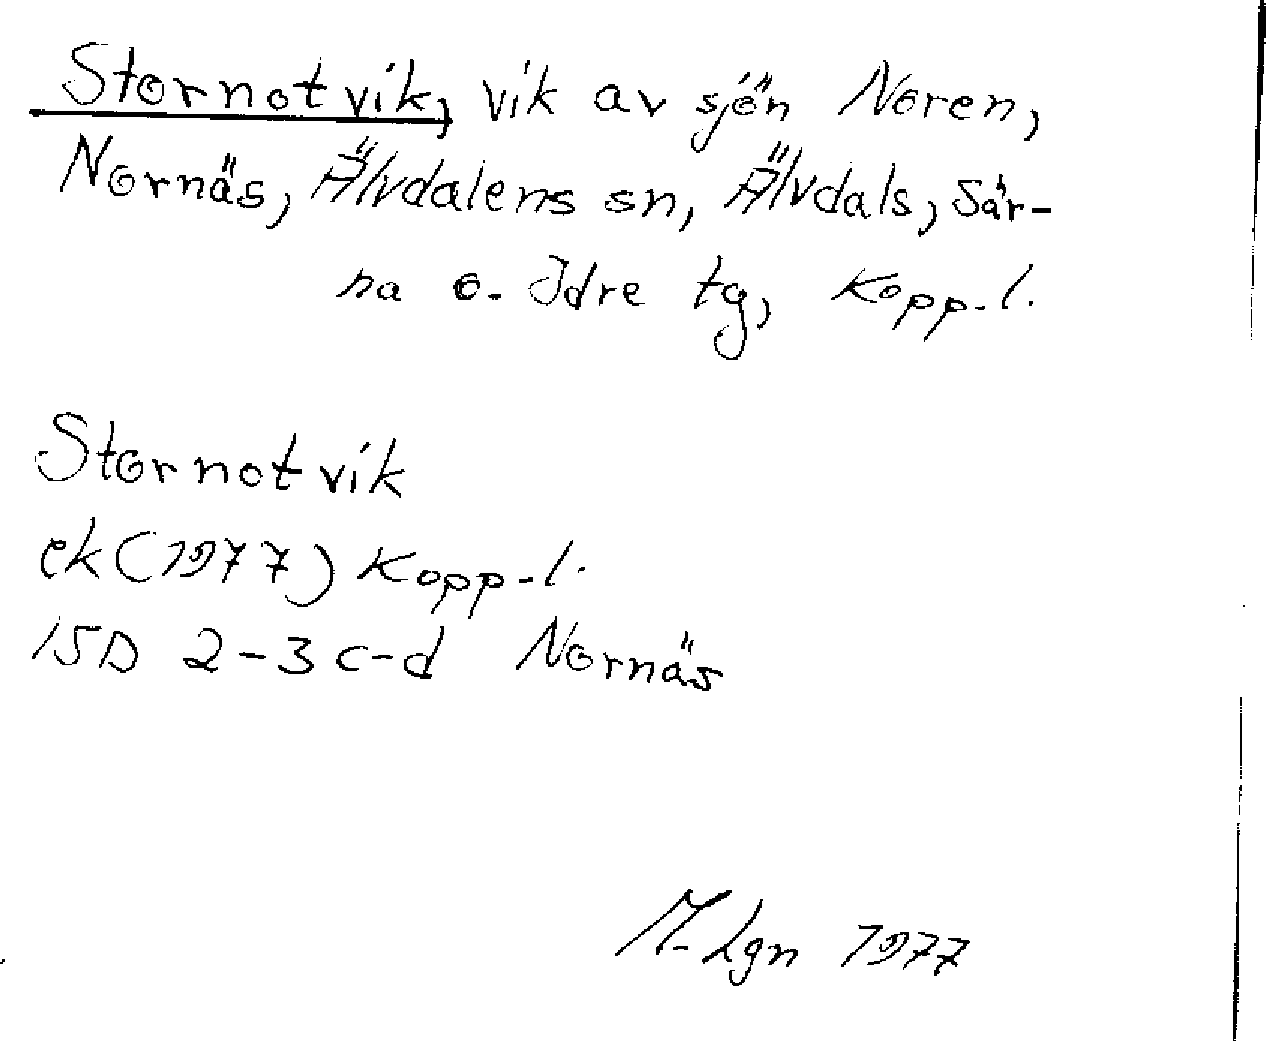 Stornotvik, vik av sjön Noren,
Nornäs, Älvdalens sn, Älvdals, Sär-
na o. Idre tg, Kopp.l.
Stornotvik
ek(1977) Kopp-l.
15D 2-3 c-d Nornäs
M-Lgn 1977